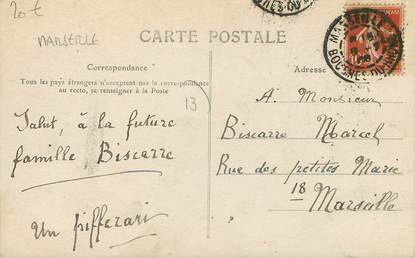 20 €
MARSEILLE
CARTE POSTALE
Correspondance
Tous les pays étrangers n'acceptent pas la correspondance
au recto, se renseigner à la Poste
13
Salut, à la future
famille Biscarre
Un pifferari
Adresse
A Monsieur
Biscarre Marcel
Rue des petites Marie
18
Marseille
MARSEILLE